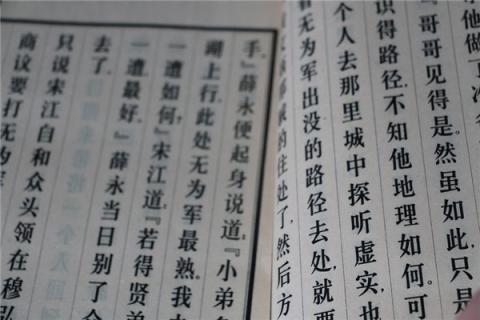 他做了
『哥哥见得是。然虽如此，只是
识得路径，不知他地理如何。可
个人去那里城中探听虚实，也
看无为军出没的路径去处，就要
的住处了，然后方
手。』薛永便起身说道：『小弟
湖上行，此处无为军最熟。我
一遭如何？』宋江道：『若得贤弟
一遭最好。』薛永当日别了
去了。
只说宋江自和众头领在穆弘
商议要打无为